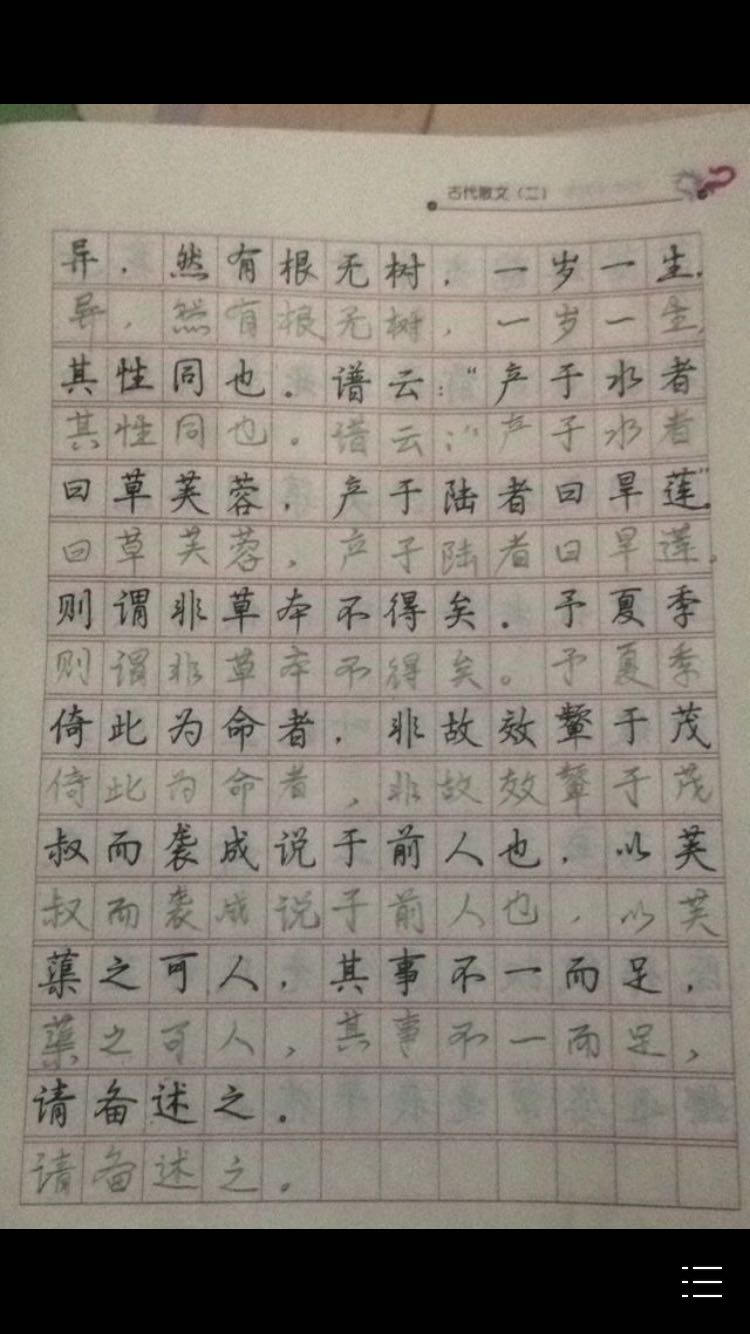 古代散文（二）
异，然有根无树，一岁一生，
异，然有根无树，一岁一生，
其性同也。谱云：“产于水者
其性同也。谱云：“产于水者
曰草芙蓉，产于陆者曰旱莲”。
曰草芙蓉，产于陆者曰旱莲。
则谓非草本不得矣。予夏季
则谓非草本不得矣。予夏季
倚此为命者，非故效颦于茂
倚此为命者，非故效颦于茂
叔而袭成说于前人也，以芙
叔而袭成说于前人也，以芙
蕖之可人，其事不一而足，
蕖之可人，其事不一而足，
请备述之。
请备述之。